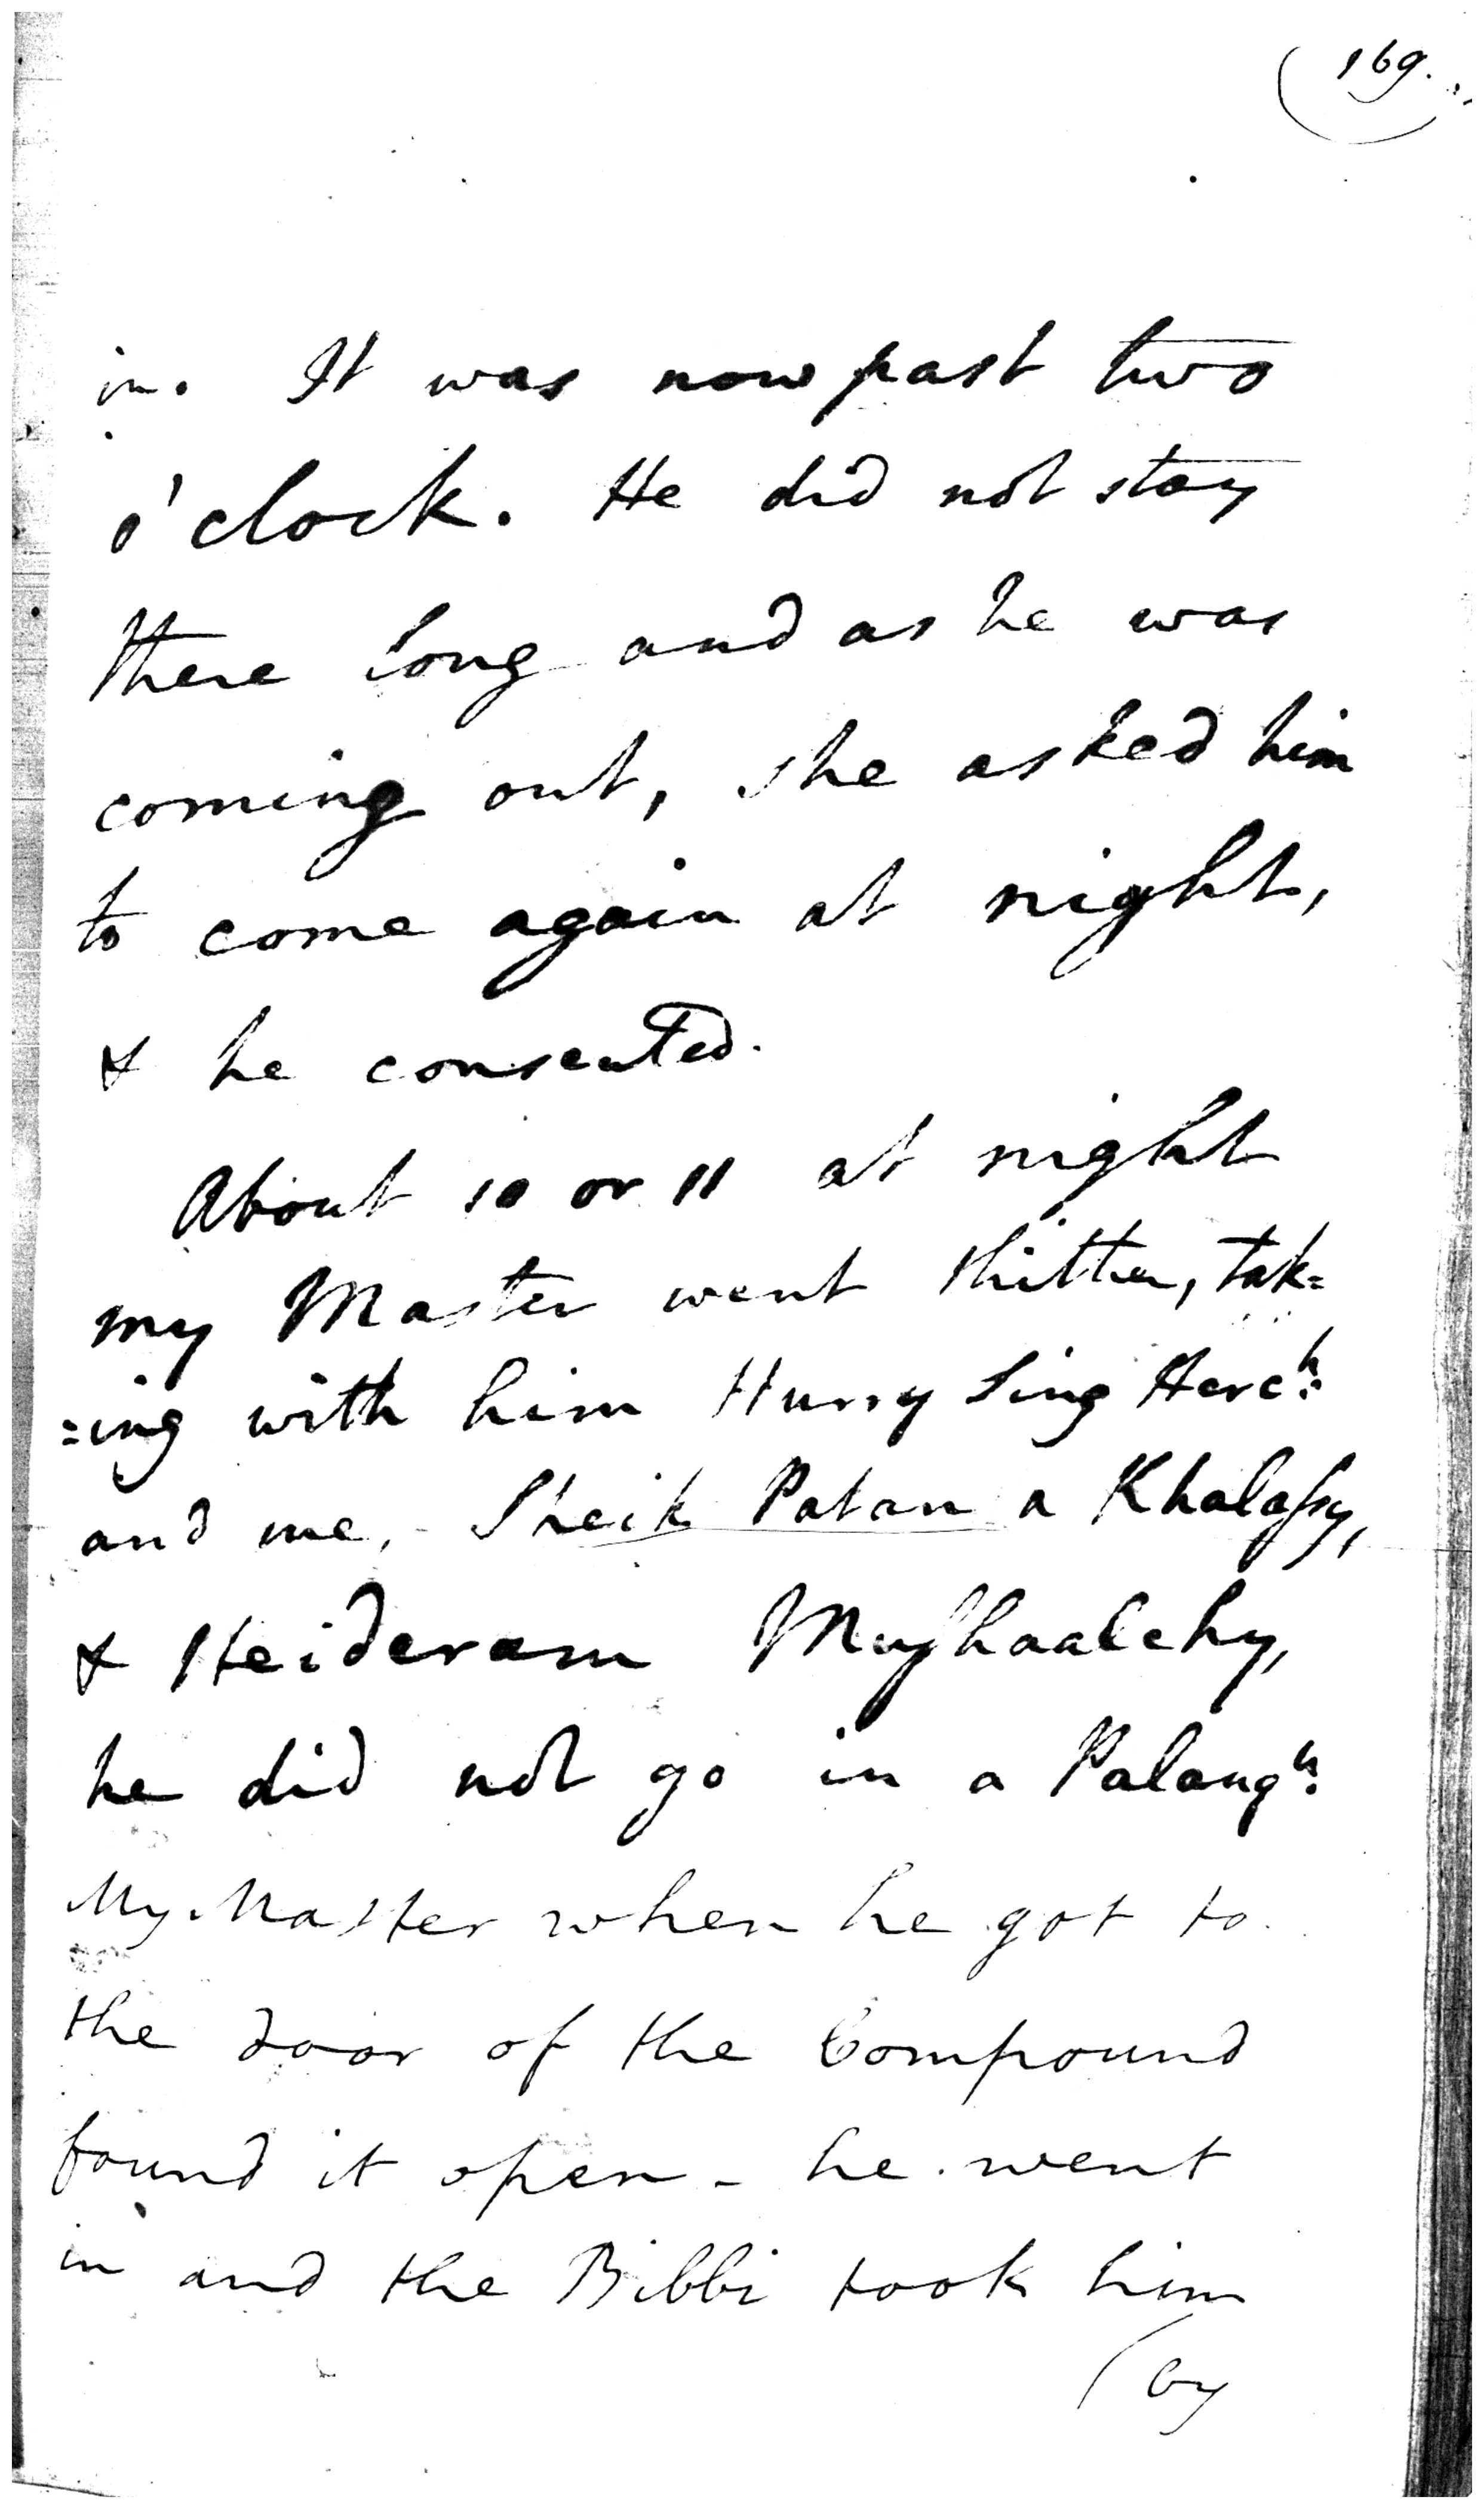 169.
in. It was now past two
o'clock. He did not stay
there long and as he was
coming out, she asked him
to come again at night,
& he consented.
About 10 or 11 at night
my Master went thither, tak=
=ing with him Hurry Sing Herc.h
and me, - Sheik Patan a Khalassy,
& Heideram Mushaalchy,
he did not go in a Palanq.n
My Master when he got to
the door of the Compound
found it open - he went
in and the Bibbi took him
(by